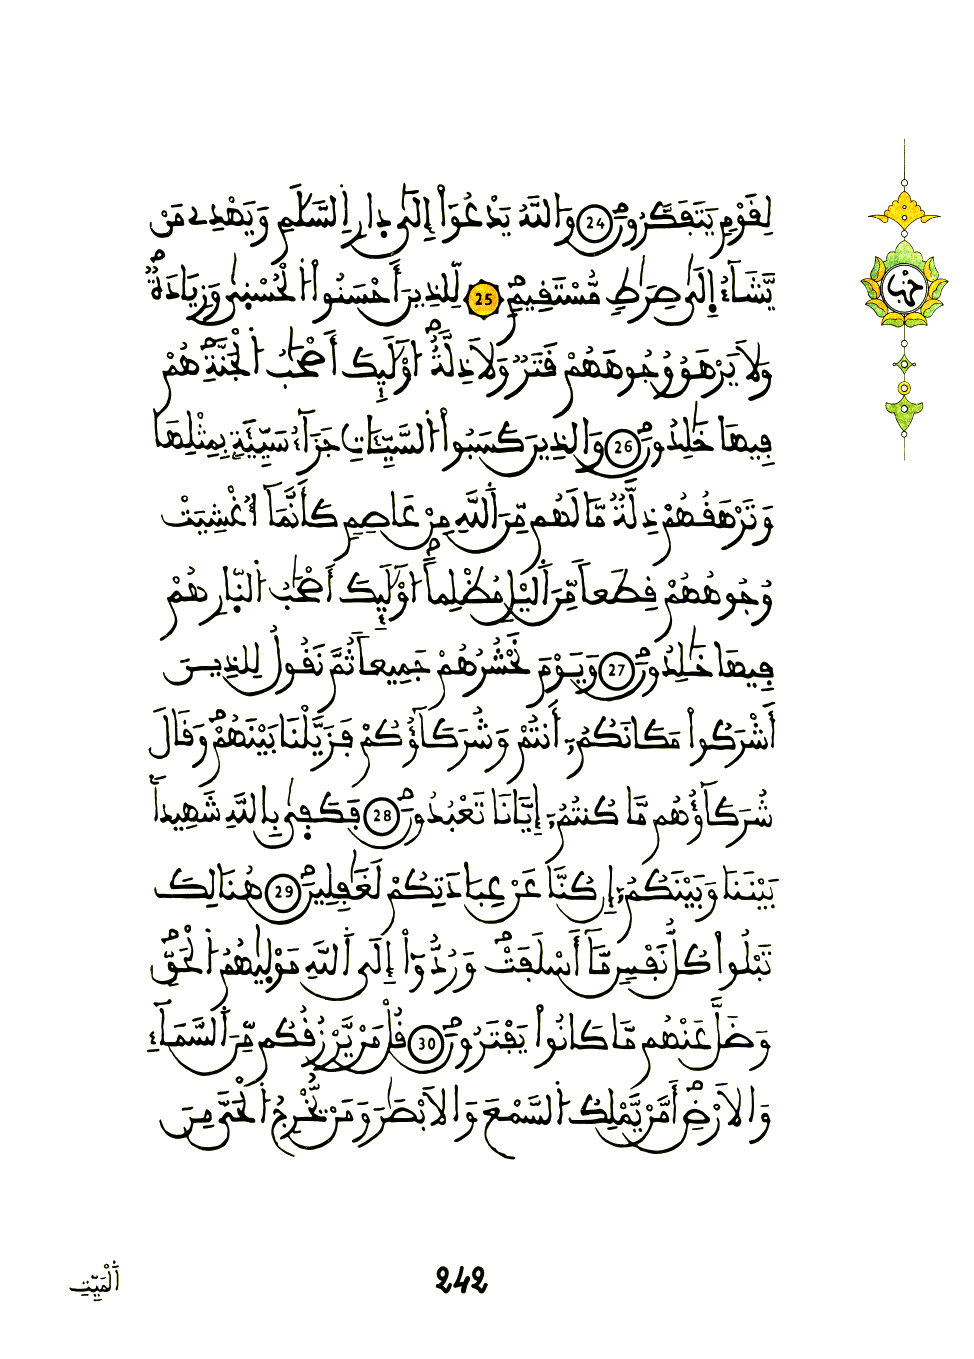 لِقَوْمٍ يَتَفَكَّرُونَ 24 وَاللَّهُ يَدْعُوٓاْ إِلَىٰ دِارِ اِ۬لسَّلَٰمِ وَيَهْدِے مَنْ
يَّشَآءُ اِلَىٰ صِرَٰطٖ مُّسْتَقِيمٖ 25 لِّلذِينَ أَحْسَنُواْ اُ۬لْحُسْن۪ىٰ وَزِيَادَةٞ
وَلَا يَرْهَقُ وُجُوهَهُمْ قَتَرٞ وَلَا ذِلَّةٌ ا۟وْلَٰٓئِكَ أَصْحَٰبُ اُ۬لْجَنَّةِ هُمْ
فِيهَا خَٰلِدُونَ 26 وَالذِينَ كَسَبُواْ اُ۬لسَّيِّـَٔاتِ جَزَآءُ سَيِّئَةِۢ بِمِثْلِهَا
وَتَرْهَقُهُمْ ذِلَّةٞ مَّا لَهُم مِّنَ اَ۬للَّهِ مِنْ عَاصِمٖ كَأَنَّمَآ أُغْشِيَتْ
وُجُوهُهُمْ قِطَعاٗ مِّنَ اَ۬ليْلِ مُظْلِماً ا۟وْلَٰٓئِكَ أَصْحَٰبُ اُ۬لنّ۪ارِ هُمْ
فِيهَا خَٰلِدُونَ 27 وَيَوْمَ نَحْشُرُهُمْ جَمِيعاٗ ثُمَّ نَقُولُ لِلذِينَ
أَشْرَكُواْ مَكَانَكُمُۥٓ أَنتُمْ وَشُرَكَآؤُكُمْ فَزَيَّلْنَا بَيْنَهُمْ وَقَالَ
شُرَكَآؤُهُم مَّا كُنتُمُۥٓ إِيَّانَا تَعْبُدُونَ 28 فَكَف۪ىٰ بِاللَّهِ شَهِيداَۢ
بَيْنَنَا وَبَيْنَكُمُۥٓ إِن كُنَّا عَنْ عِبَادَتِكُمْ لَغَٰفِلِينَ 29 هُنَالِكَ
تَبْلُواْ كُلُّ نَفْسٖ مَّآ أَسْلَفَتْ وَرُدُّوٓاْ إِلَى اَ۬للَّهِ مَوْل۪يٰهُمُ اُ۬لْحَقِّ
وَضَلَّ عَنْهُم مَّا كَانُواْ يَفْتَرُونَ 30 قُلْ مَنْ يَّرْزُقُكُم مِّنَ اَ۬لسَّمَآءِ
وَالَارْضِ أَمَّنْ يَّمْلِكُ اُ۬لسَّمْعَ وَالَابْصَٰرَ وَمَنْ يُّخْرِجُ اُ۬لْحَيَّ مِنَ
اَ۬لْمَيِّتِ
242